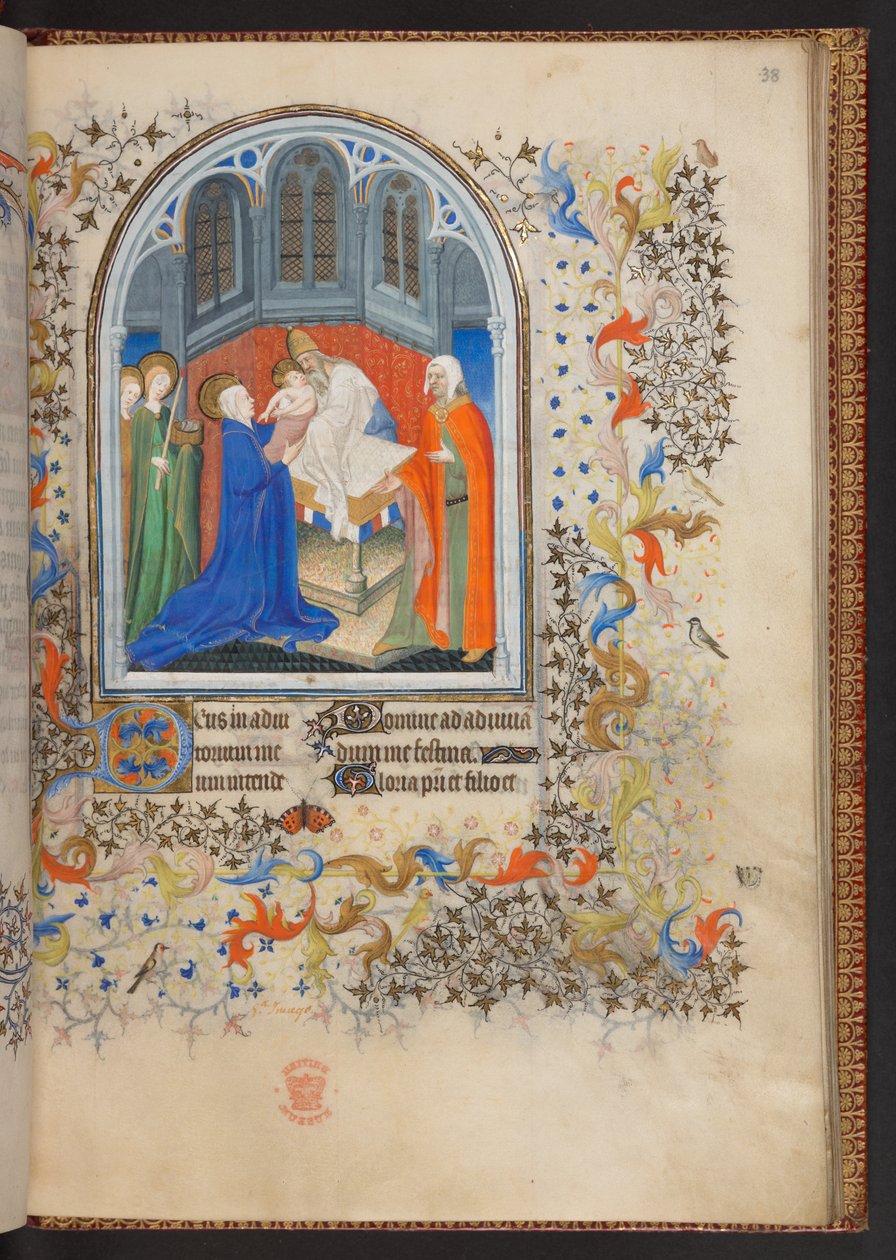 38
Deus in adiu
torium me
um intende
Domine ad adiuua
dum me festina.
Gloria pri et filio et
BRITISH
MUSEUM